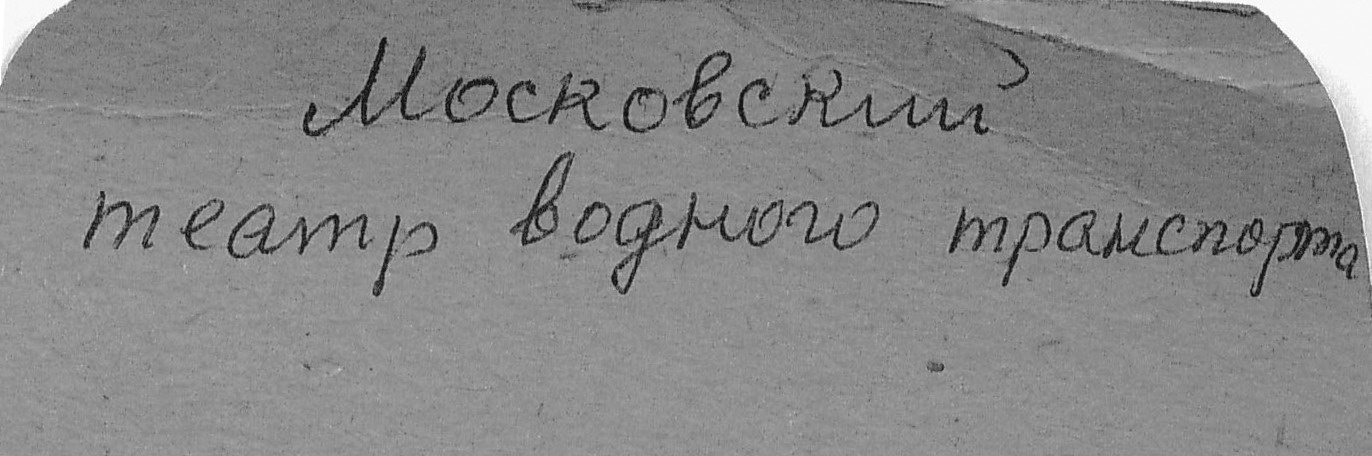 Московский
театр водного транспорта